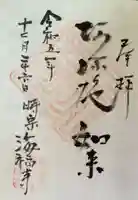 奉拝
阿弥陀如来
令和五年
十二月二十六日
海福寺